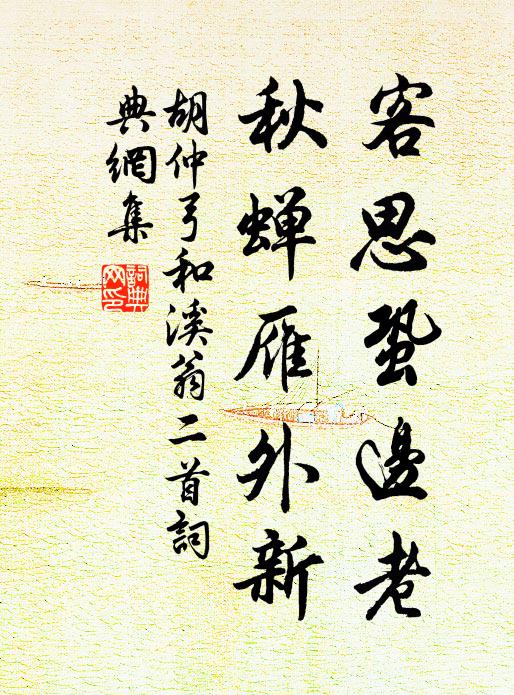 客思蛩邊老
秋蝉雁外新
胡仲弓和溪翁二首詞
典網集
詞典
网印